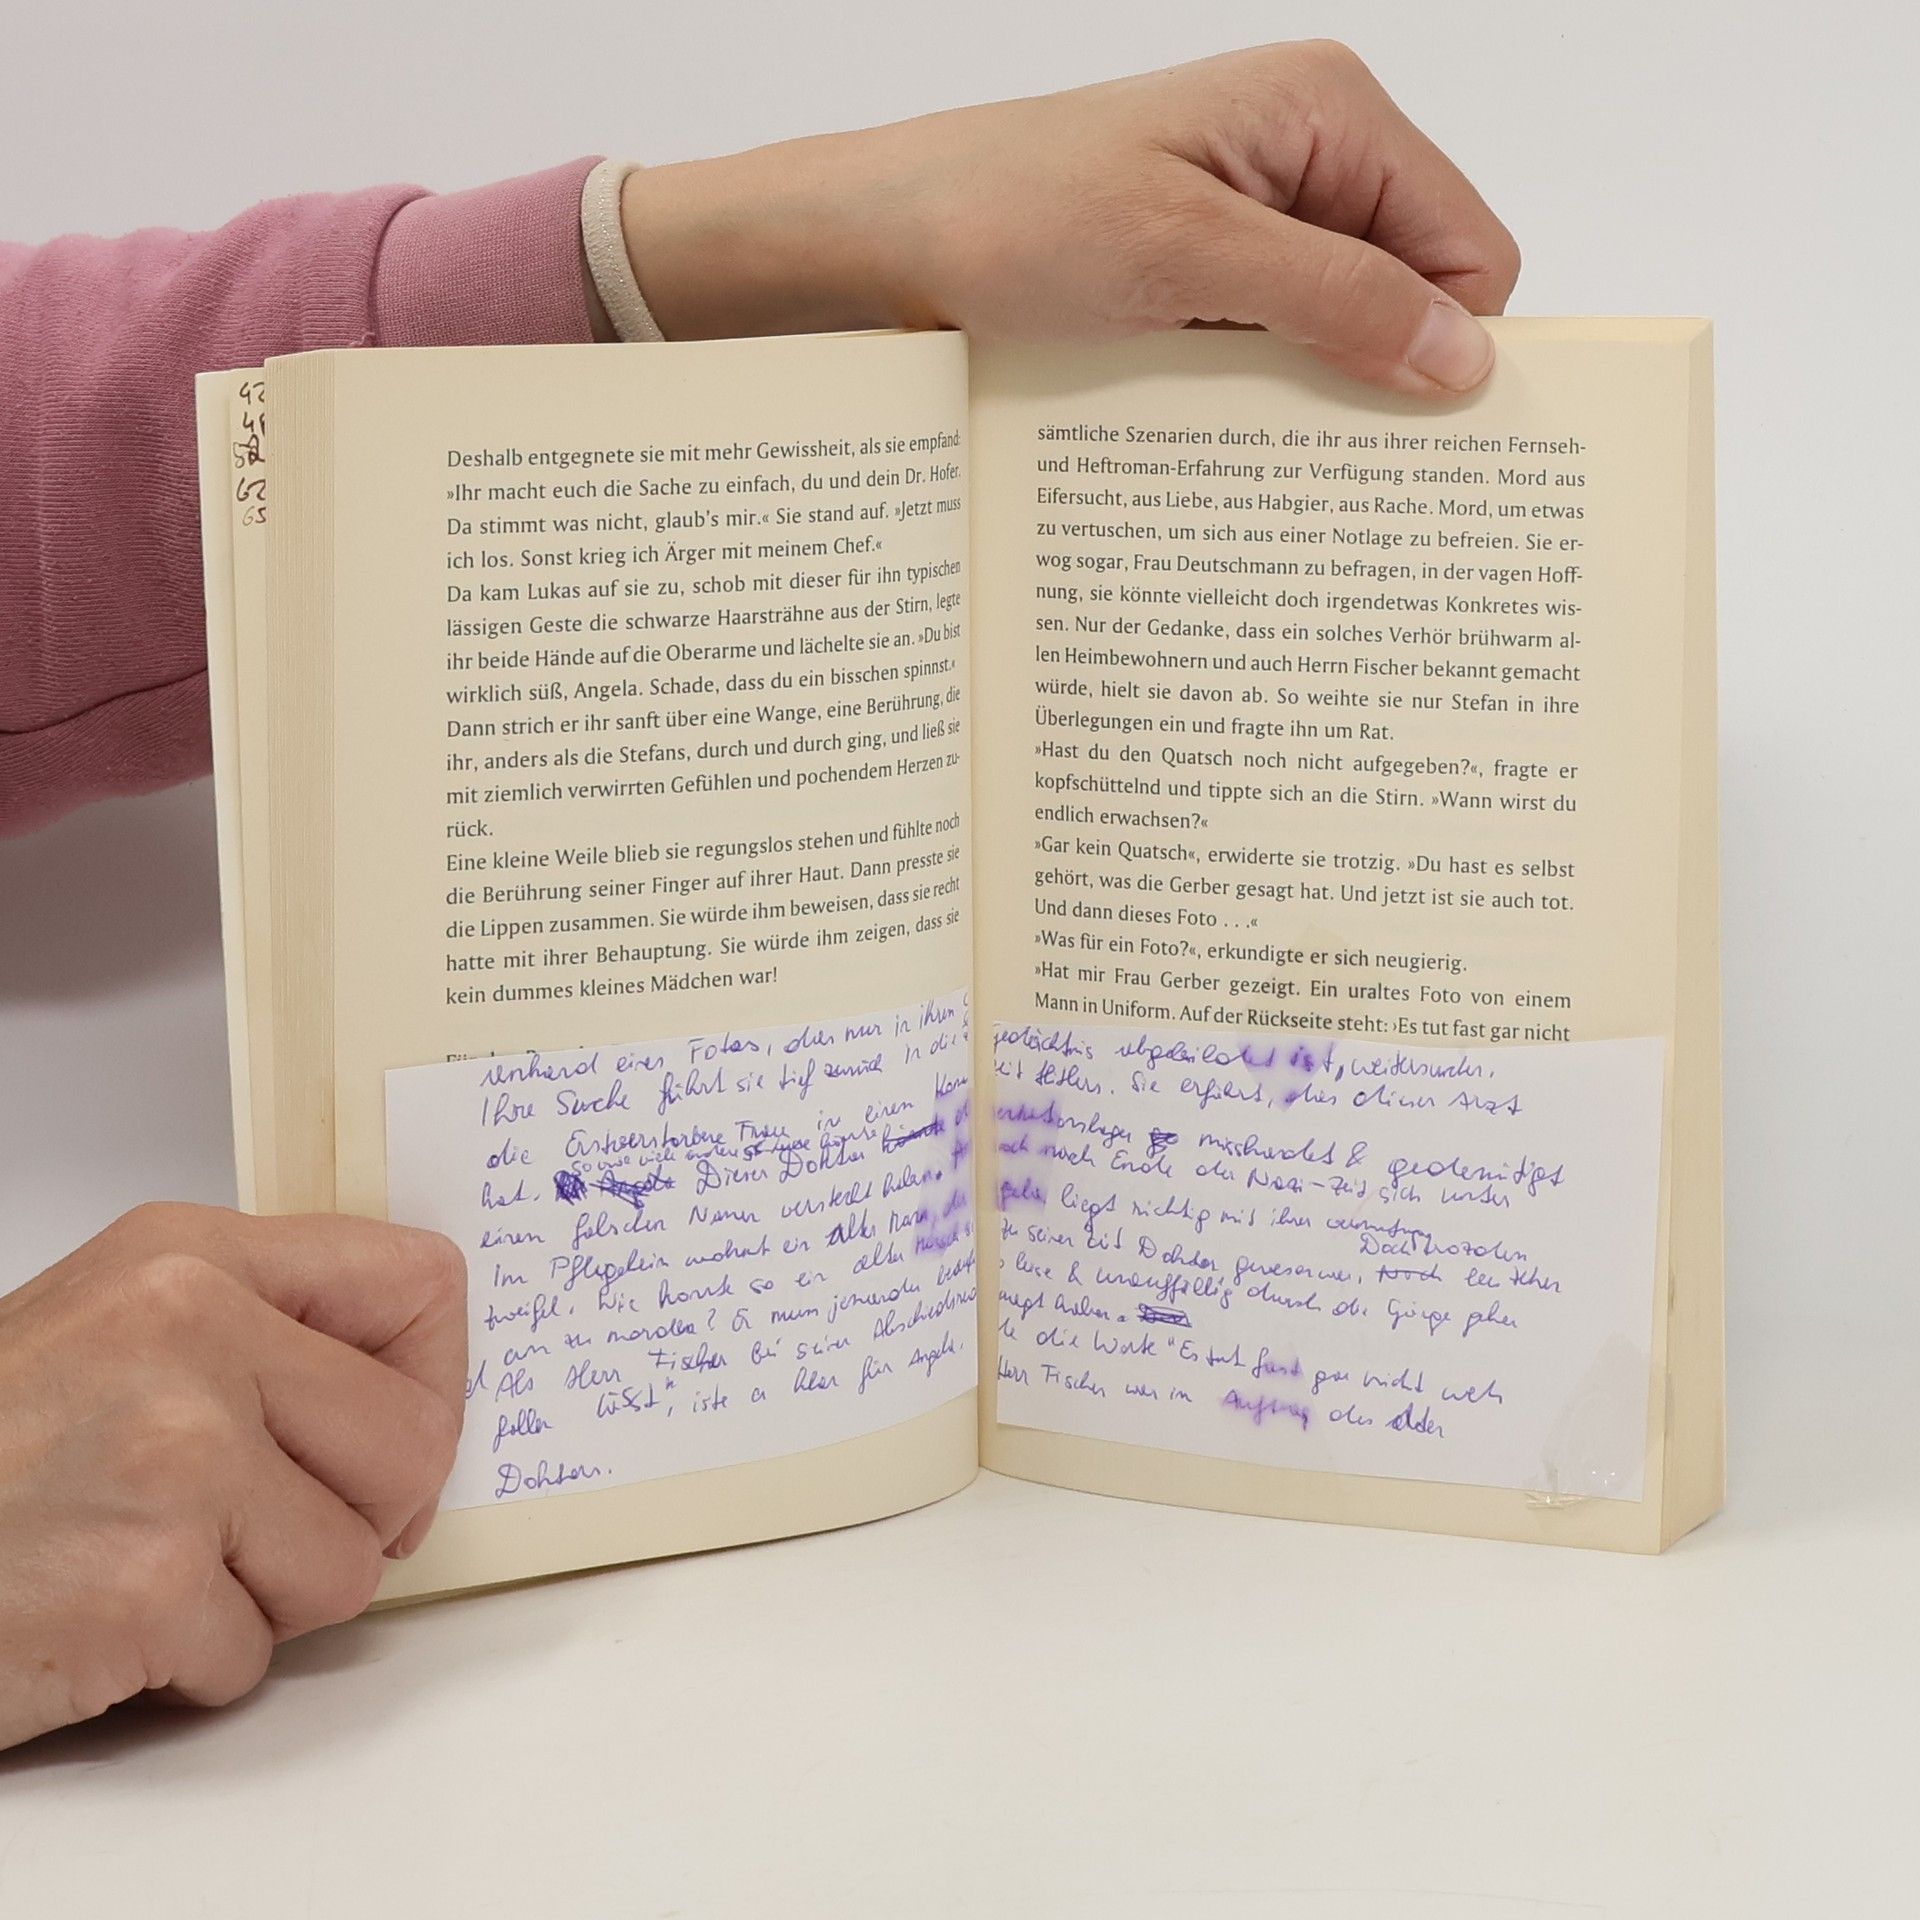 42
Deshalb entgegnete sie mit mehr Gewissheit, als sie empfand:
»Ihr macht euch die Sache zu einfach, du und dein Dr. Hofer.
Da stimmt was nicht, glaub's mir.« Sie stand auf. »Jetzt muss
ich los. Sonst krieg ich Ärger mit meinem Chef.«
Da kam Lukas auf sie zu, schob mit dieser für ihn typischen
lässigen Geste die schwarze Haarsträhne aus der Stirn, legte
ihr beide Hände auf die Oberarme und lächelte sie an. »Du bist
wirklich süß, Angela. Schade, dass du ein bisschen spinnst.«
Dann strich er ihr sanft über eine Wange, eine Berührung, die
ihr, anders als die Stefans, durch und durch ging, und ließ sie
mit ziemlich verwirrten Gefühlen und pochendem Herzen zu-
rück.
Eine kleine Weile blieb sie regungslos stehen und fühlte noch
die Berührung seiner Finger auf ihrer Haut. Dann presste sie
die Lippen zusammen. Sie würde ihm beweisen, dass sie recht
hatte mit ihrer Behauptung. Sie würde ihm zeigen, dass sie
kein dummes kleines Mädchen war!
eines Fotos, nur in ihren
Ihre Suche führt sie tief zurück in die
die Frau in einen
hat. Dieser Doktor
einen falschen Namen versteckt haben.
Im Pflegeheim wohnt ein alter Mann,
Wie konnte so ein alter
an zu morden? Er muss jemanden
Als Herr Fischer bei seiner
fallen lässt", ist klar für Angela.
Doktors.
sämtliche Szenarien durch, die ihr aus ihrer reichen Fernseh-
und Heftroman-Erfahrung zur Verfügung standen. Mord aus
Eifersucht, aus Liebe, aus Habgier, aus Rache. Mord, um etwas
zu vertuschen, um sich aus einer Notlage zu befreien. Sie er-
wog sogar, Frau Deutschmann zu befragen, in der vagen Hoff-
nung, sie könnte vielleicht doch irgendetwas Konkretes wis-
sen. Nur der Gedanke, dass ein solches Verhör brühwarm al-
len Heimbewohnern und auch Herrn Fischer bekannt gemacht
würde, hielt sie davon ab. So weihte sie nur Stefan in ihre
Überlegungen ein und fragte ihn um Rat.
»Hast du den Quatsch noch nicht aufgegeben?«, fragte er
kopfschüttelnd und tippte sich an die Stirn. »Wann wirst du
endlich erwachsen?«
»Gar kein Quatsch«, erwiderte sie trotzig. »Du hast es selbst
gehört, was die Gerber gesagt hat. Und jetzt ist sie auch tot.
Und dann dieses Foto . . .«
»Was für ein Foto?«, erkundigte er sich neugierig.
»Hat mir Frau Gerber gezeigt. Ein uraltes Foto von einem
Mann in Uniform. Auf der Rückseite steht: ›Es tut fast gar nicht
ist, weitersuchen.
Hitlers. Sie erfährt, dieser Arzt
misshandelt & gedemütigt
nach Ende der Nazi-Zeit sich unter
liegt richtig mit ihrer
zu seiner Zeit Doktor
& unauffällig durch die Gänge gehen
die Worte "Es tut fast gar nicht weh
Herr Fischer war im Auftrag des